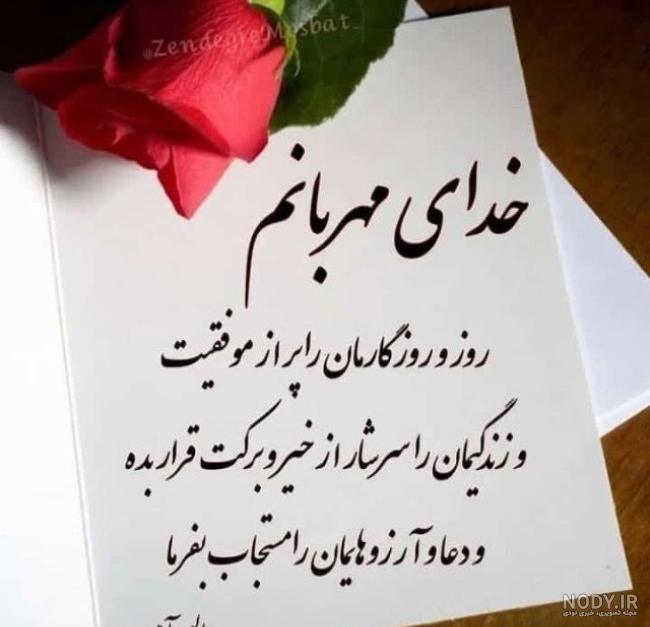 @ZendegieMosbat_
خدای مهربانم
روز و روزگارمان را پر از موفقیت
و زندگیمان را سرشار از خیر و برکت قرار بده
و دعا و آرزوهایمان را مستجاب بفرما
NODY.IR
مجله تصویری، خبری نودی